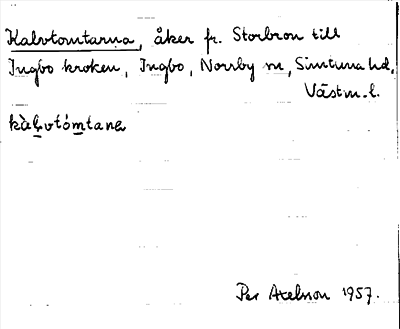 Kalvtomtarna, åker fr. Storbron till
Ingbo kroken, Ingbo, Norrby sn, Simtuna hd,
Västm. l.
kàl̲vtóm̲tana
Per Axelsson 1957.